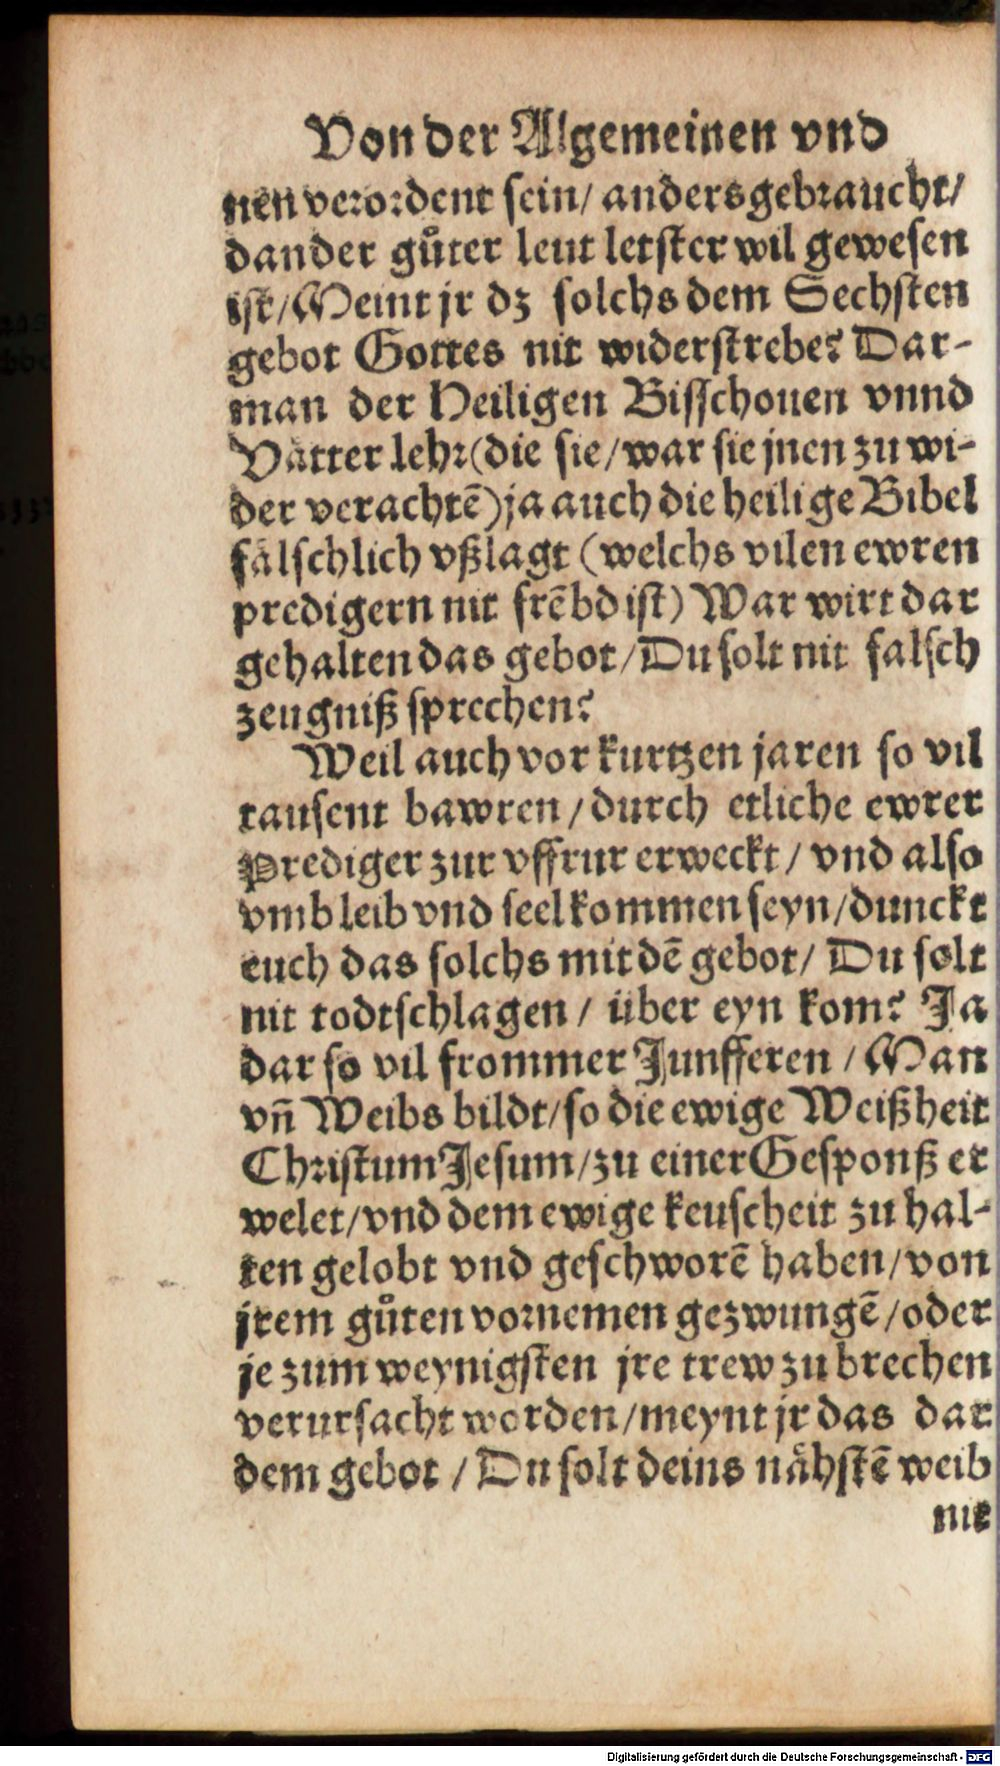 Von der Algemeinen vnd
nen verordent sein/ anders gebraucht/
dan der gůter leut letster wil gewesen
ist/ Meint jr dz solchs dem Sechsten
gebot Gottes nit widerstrebe? Dar-
man der Heiligen Bisschouen vnnd
Vätter lehr (die sie/ war sie jnen zu wi-
der verachtē) ja auch die heilige Bibel
fälschlich vßlagt (welchs vilen ewren
predigern nit frēbd ist) War wirt dar
gehalten das gebot/ Du solt nit falsch
zeugniß sprechen?
Weil auch vor kurtzen jaren so vil
tausent bawren/ durch etliche ewrer
Prediger zur vffrur erweckt/ vnd also
vmb leib vnd seel kommen seyn/ dunckt
euch das solchs mit dē gebot/ Du solt
nit todtschlagen/ über eyn kom? Ja
dar so vil frommer Junfferen/ Man
vñ Weibs bildt/ so die ewige Weißheit
Christum Jesum/ zu einer Gesponß er
welet/ vnd dem ewige keuscheit zu hal-
ten gelobt vnd geschworē haben/ von
jrem gůten vornemen gezwungē/ oder
je zum weynigsten jre trew zu brechen
verursacht worden/ meynt jr das dar
dem gebot/ Du solt deins nähstē weib
nit
Digitalisierung gefördert durch die Deutsche Forschungsgemeinschaft - DFG